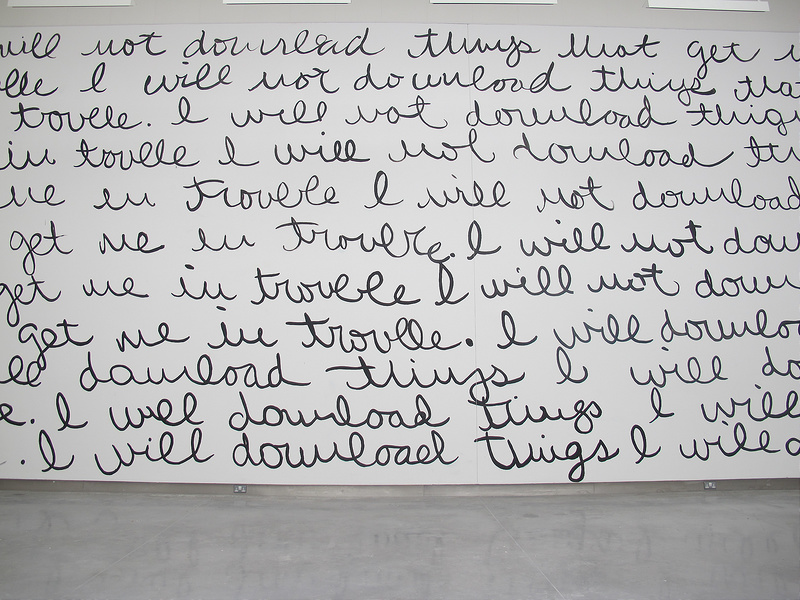 will not download things that get
I will not download things that
trouble. I will not download things
in trouble I will not download
me in trouble I will not download
get me in trouble. I will not down
get me in trouble I will not down
get me in trouble. I will downloa
download things I will do
e. I will download things I will
. I will download things I will d